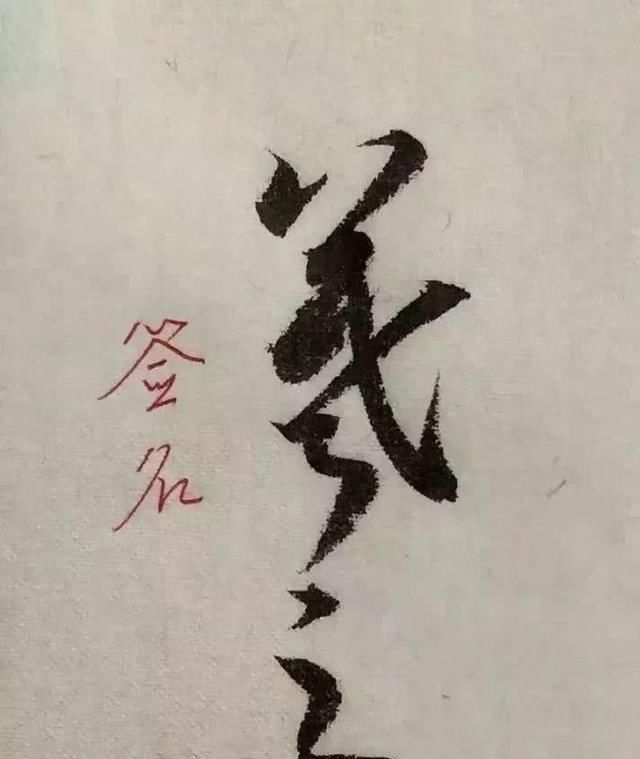 羲之
签名